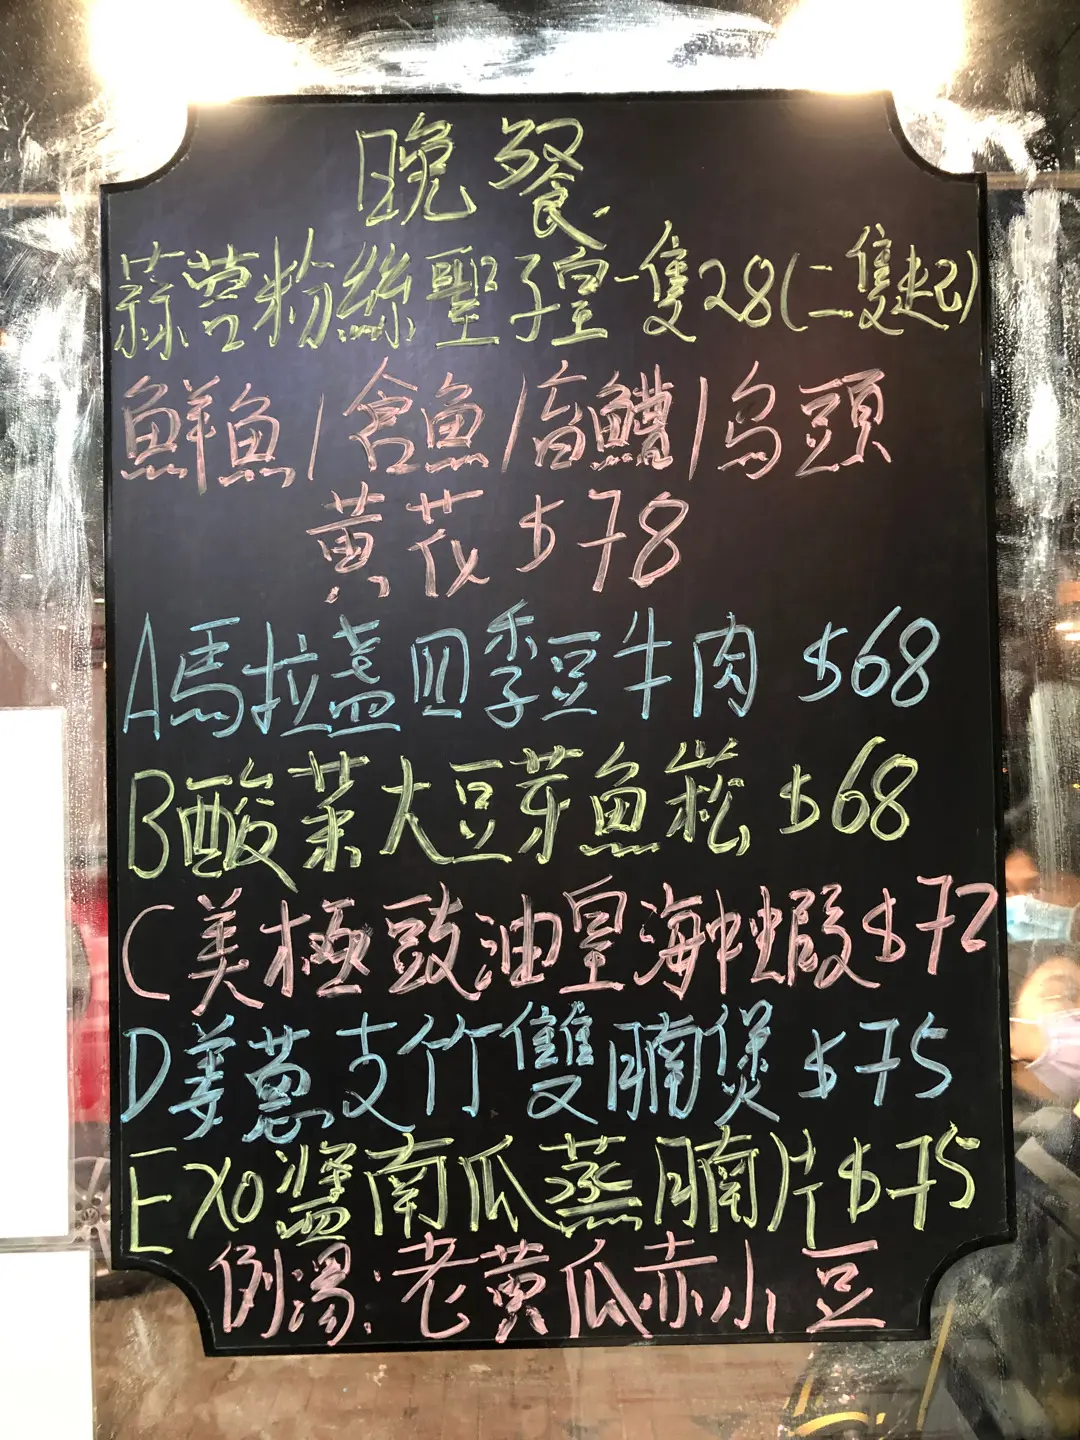 晚餐
蒜茸粉絲聖子皇一隻28(二隻起)
鮮魚/倉魚/盲鰽/烏頭
黃花 $78
A馬拉盞四季豆牛肉 $68
B酸菜大豆芽魚崧 $68
C美極豉油皇海中蝦$72
D姜蔥支竹雙腩煲 $75
EXO醬南瓜蒸腩片$75
例湯:老黃瓜赤小豆